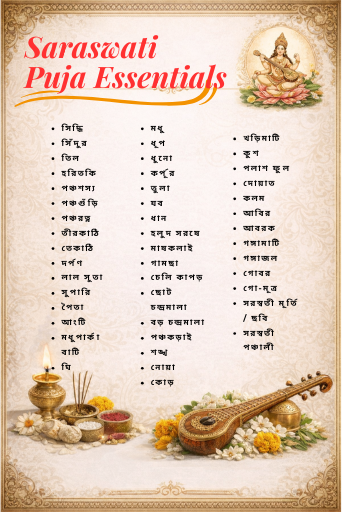 Saraswati
Puja Essentials
সিদ্ধি
সিঁদুর
তিল
হরিতকি
পঞ্চশস্য
পঞ্চগুঁড়ি
পঞ্চরত্ন
তীরকাঠি
তেকাঠি
দর্পণ
লাল সুতা
সুপারি
পৈতা
আংটি
মধুপার্কা
বাটি
ঘি
মধু
ধূপ
ধুনো
কর্পূর
তুলা
যব
ধান
হলুদ সরষে
মাষকলাই
গামছা
চেলি কাপড়
ছোট
চন্দ্রমালা
বড় চন্দ্রমালা
পঞ্চকড়াই
শঙ্খ
নোয়া
কোড়
খড়িমাটি
কুশ
পলাশ ফুল
দোয়াত
কলম
আবির
আবরক
গঙ্গামাটি
গঙ্গাজল
গোবর
গো-মূত্র
সরস্বতী মূর্তি
/ ছবি
সরস্বতী
পঞ্চালী